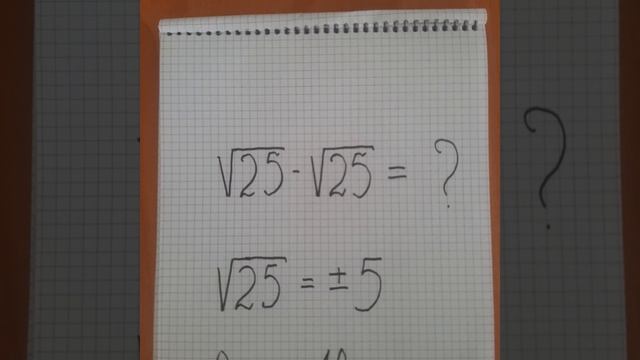 √25 - √25 = ?
√25 = ± 5
?